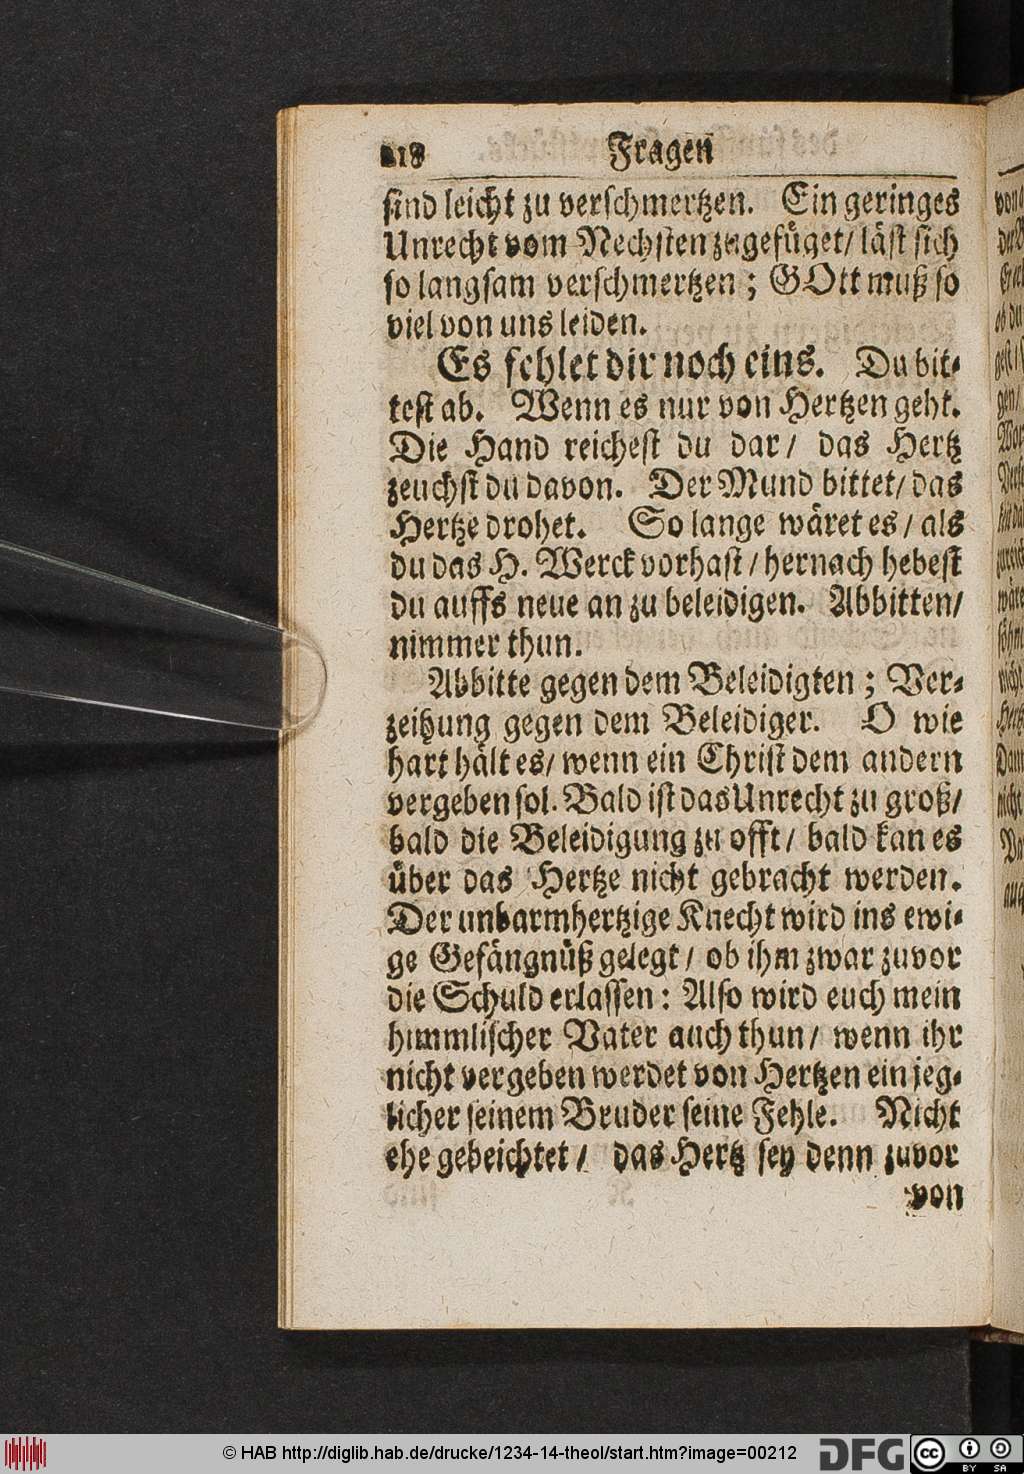 218 Fragen
sind leicht zu verschmertzen. Ein geringes
Unrecht vom Nechsten zugefüget/ läst sich
so langsam verschmertzen; GOtt muß so
viel von uns leiden.
Es fehlet dir noch eins. Du bit-
test ab. Wenn es nur von Hertzen geht.
Die Hand reichest du dar/ das Hertz
zeuchst du davon. Der Mund bittet/ das
Hertze drohet. So lange wäret es/ als
du das H. Werck vorhast/ hernach hebest
du auffs neue an zu beleidigen. Abbitten/
nimmer thun.
Abbitte gegen dem Beleidigten; Ver-
zeihung gegen dem Beleidiger. O wie
hart hält es/ wenn ein Christ dem andern
vergeben sol. Bald ist das Unrecht zu groß/
bald die Beleidigung zu offt/ bald kan es
über das Hertze nicht gebracht werden.
Der unbarmhertzige Knecht wird ins ewi-
ge Gefängnüß gelegt/ ob ihm zwar zuvor
die Schuld erlassen: Also wird euch mein
himmlischer Vater auch thun/ wenn ihr
nicht vergeben werdet von Hertzen ein jeg-
licher seinem Bruder seine Fehle. Nicht
ehe gebeichtet/ das Hertz sey denn zuvor
von
© HAB http://diglib.hab.de/drucke/1234-14-theol/start.htm?image=00212
DFG
cc BY SA